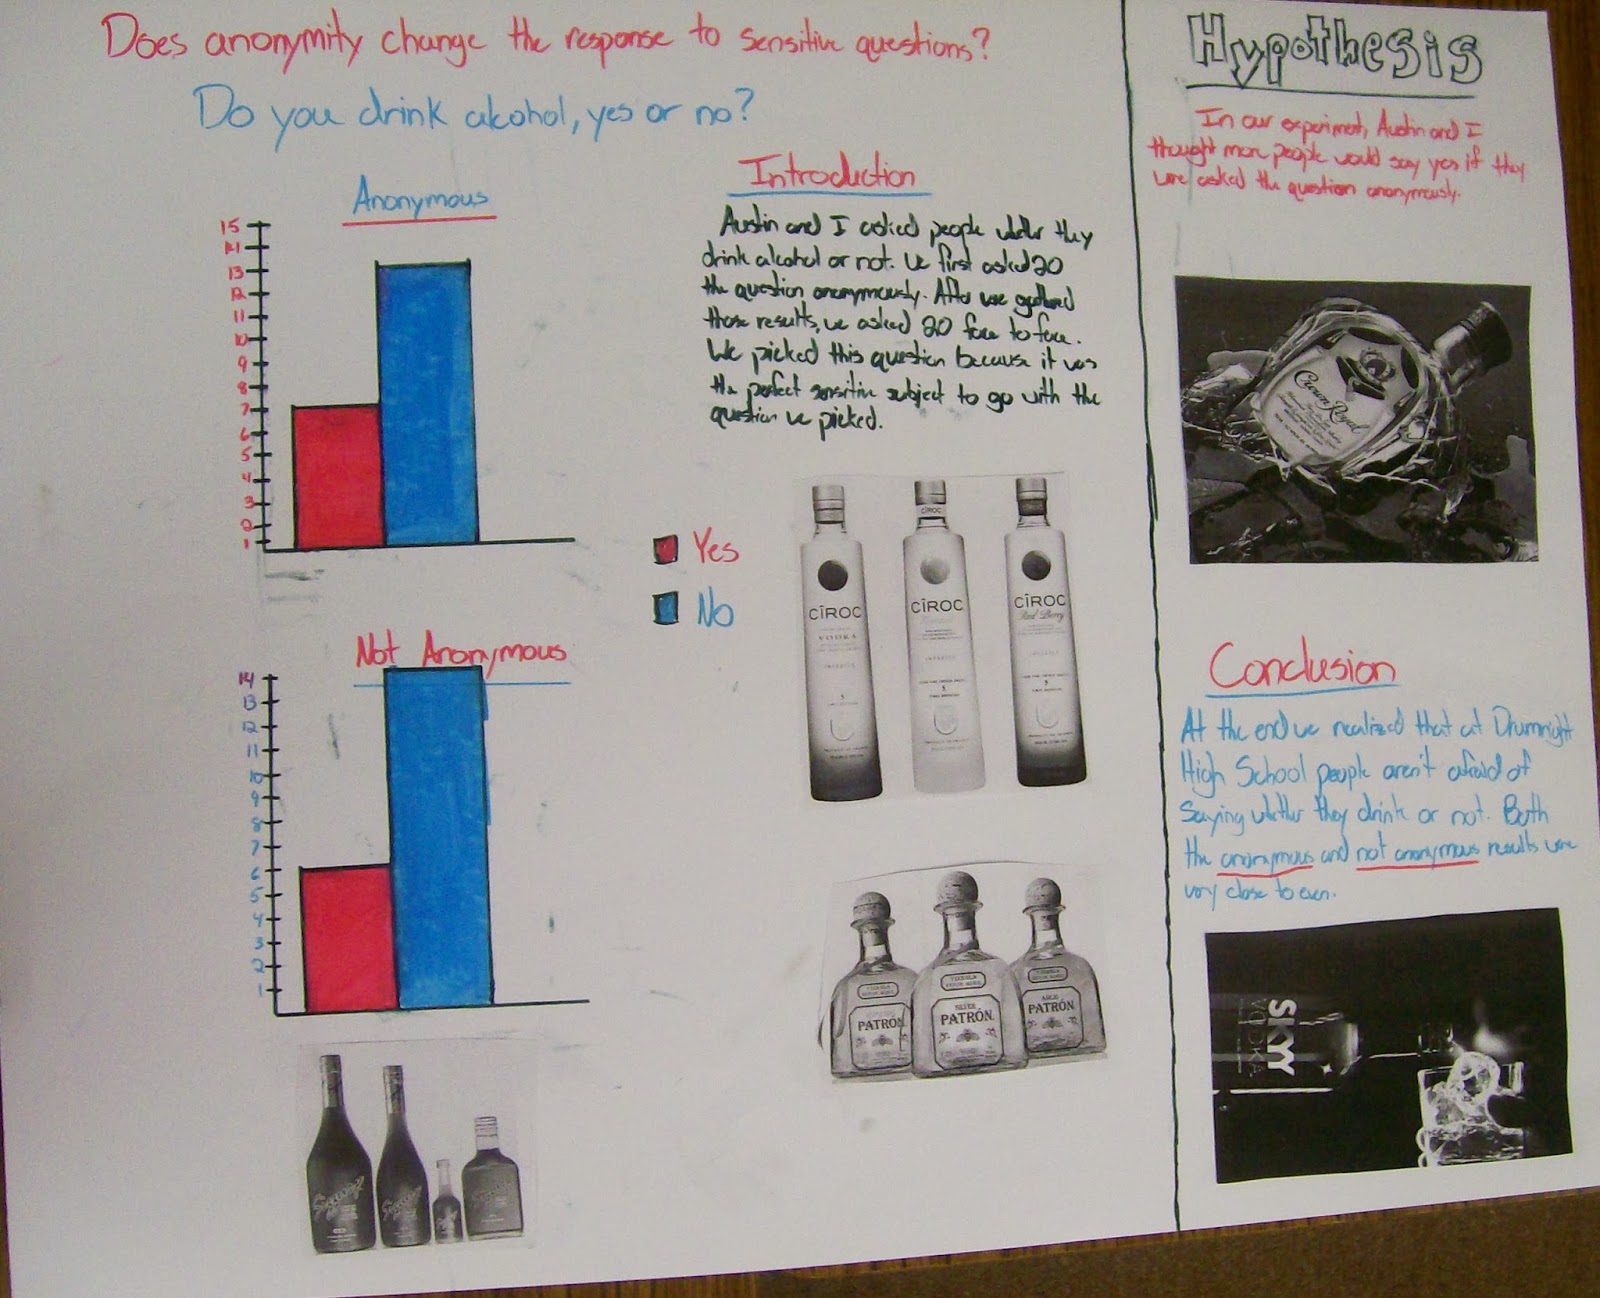 Does anonymity change the response to sensitive questions?
Do you drink alcohol, yes or no?
Anonymous
15
14
13
12
11
10
9
8
7
6
5
4
3
2
1
Yes
No
Not Anonymous
14
13
12
11
10
9
8
7
6
5
4
3
2
1
Introduction
Austin and I asked people whether they
drink alcohol or not. We first asked 20
the question anonymously. After we gathered
those results, we asked 20 face to face.
We picked this question because it was
the perfect sensitive subject to go with the
question we picked.
CÎROC
VODKA
CÎROC
CÎROC
CÎROC
Red Berry
TEQUILA
PATRÓN
TEQUILA
SILVER
PATRÓN
TEQUILA
AÑEJO
PATRÓN
Hypothesis
In our experiment, Austin and I
thought more people would say yes if they
were asked the question anonymously.
Crown Royal
Conclusion
At the end we realized that at Drumright
High School people aren't afraid of
saying whether they drink or not. Both
the anonymous and not anonymous results were
very close to even.
SKYY
VODKA